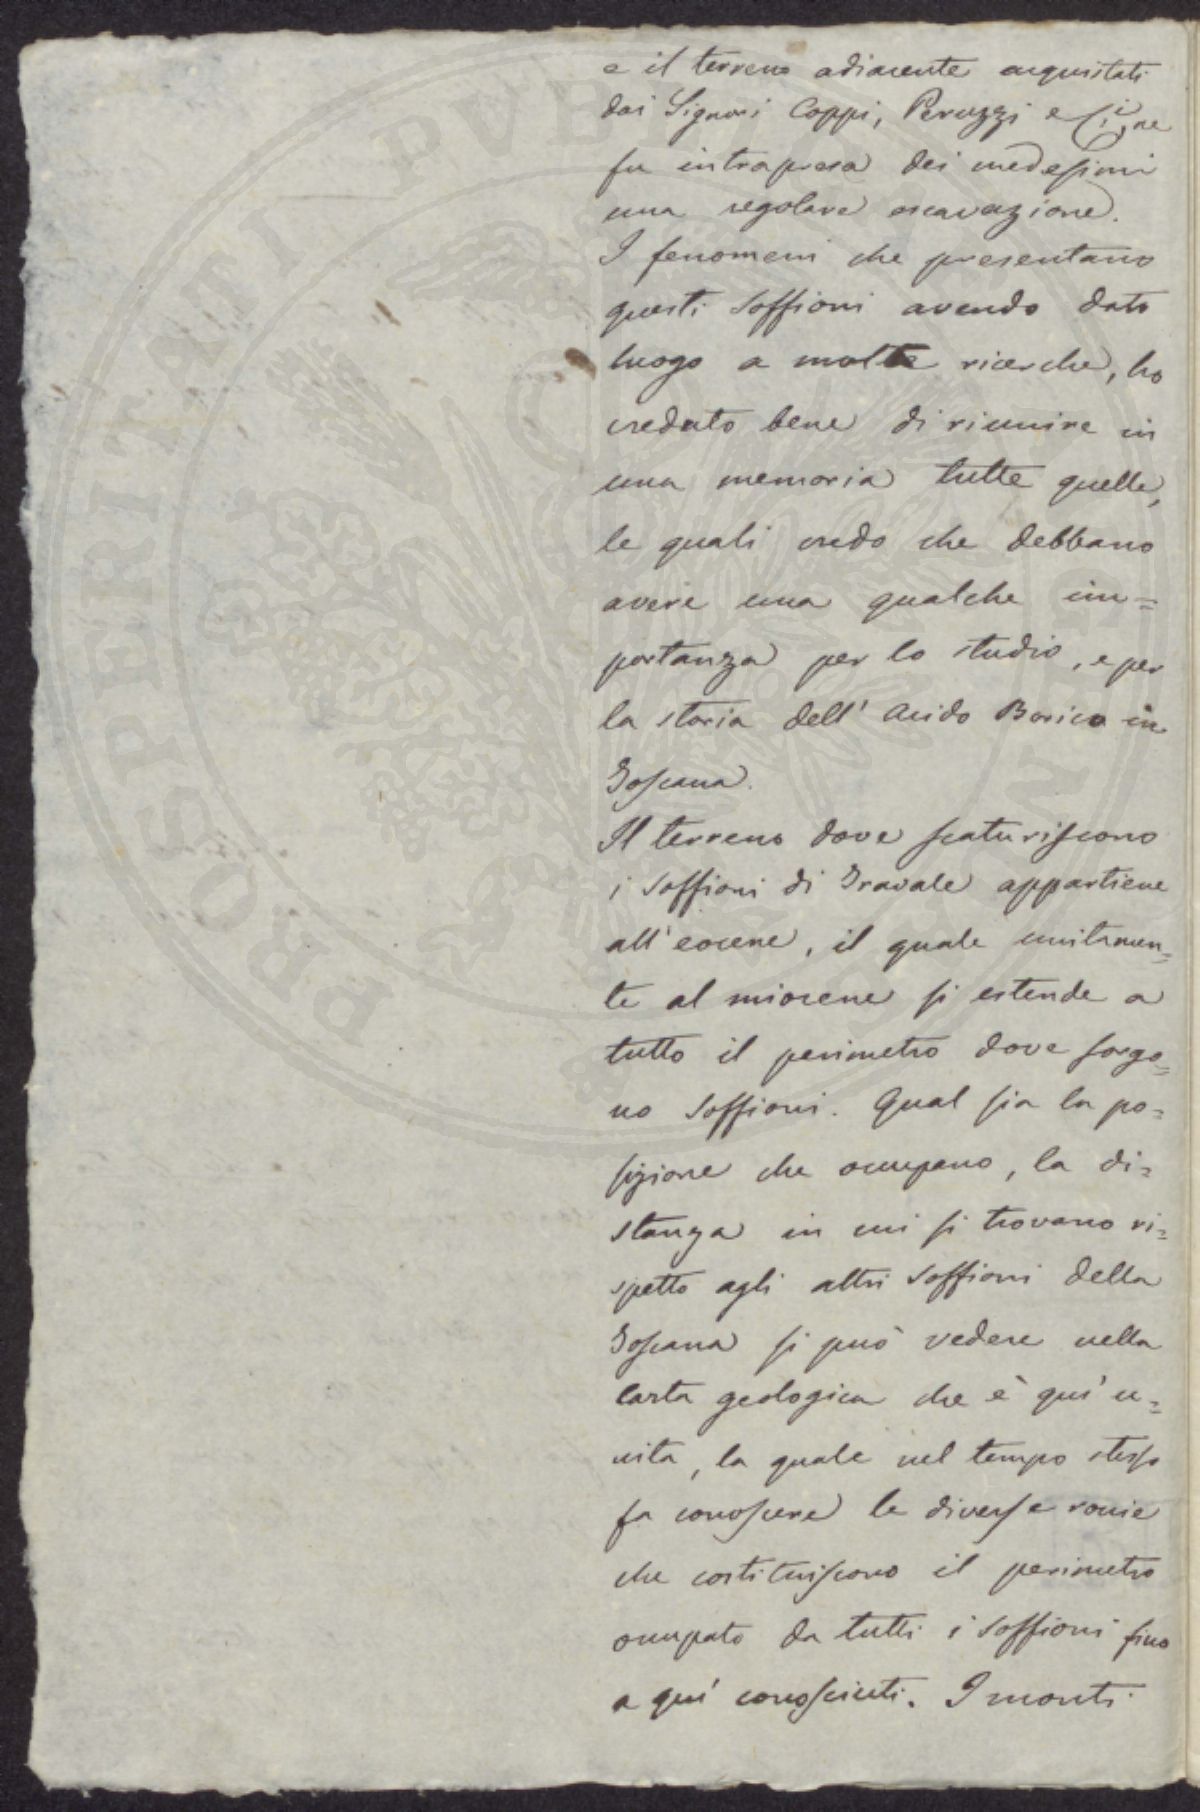 e il terreno adiacente acquistati
dai Signori Coppi, Peruzzi e
fu intrapresa dei medesimi
una regolare escavazione.
I fenomeni che presentano
questi Soffioni avendo dato
luogo a molte ricerche, ho
creduto bene di riunire in
una memoria tutte quelle,
le quali credo che debbano
avere una qualche im=
portanza per lo studio, e per
la storia dell' Acido Borico in
Toscana.
Il terreno dove scaturiscono
i Soffioni di Travale appartiene
all'eocene, il quale unitamen=
te al miocene si estende a
tutto il perimetro dove sorgo=
no Soffioni. Qual sia la po=
sizione che occupano, la di=
stanza in cui si trovano ri=
spetto agli altri Soffioni della
Toscana si può vedere nella
Carta geologica che è quì u=
nita, la quale nel tempo stesso
fa conoscere le diverse roccie
che costituiscono il perimetro
occupato da tutti i Soffioni fino
a quì conosciuti. I monti
PROSPERITATI PVBLICAE